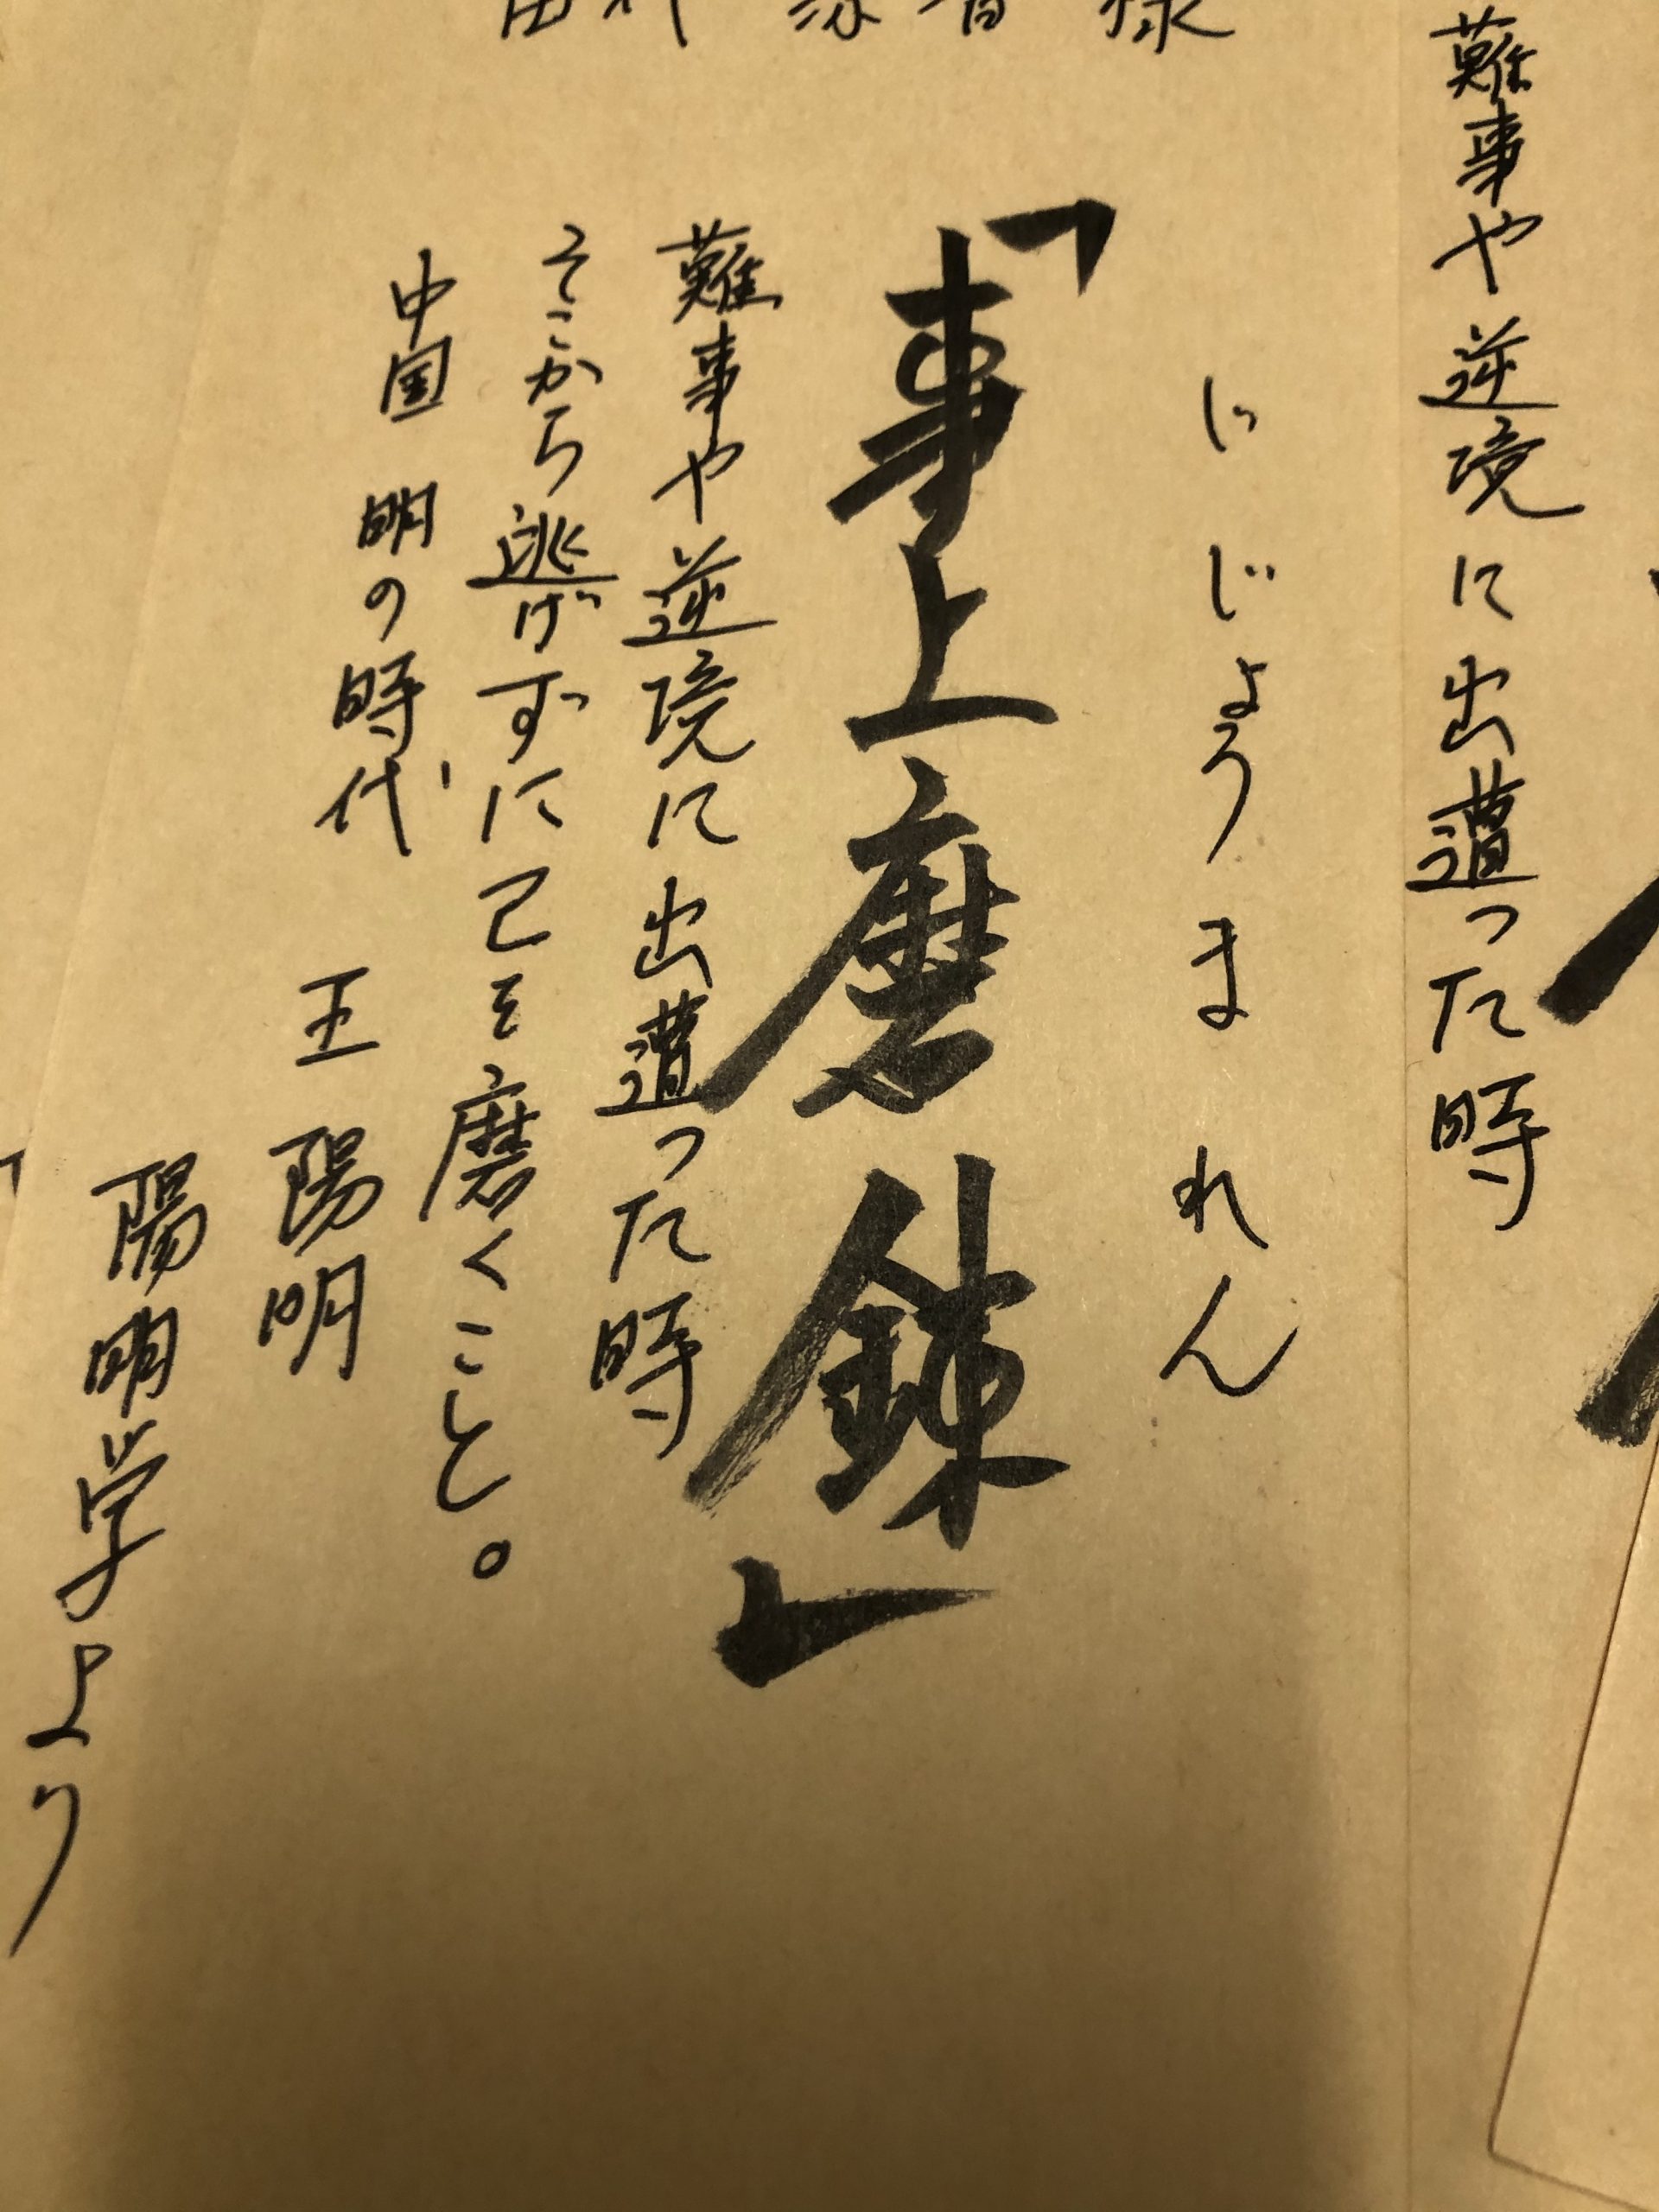 難事や逆境に出遭った時
じじょうまれん
「事上磨錬」
難事や逆境に出遭った時
そこから逃げずに己を磨くこと。
中国 明の時代 王陽明
陽明学より